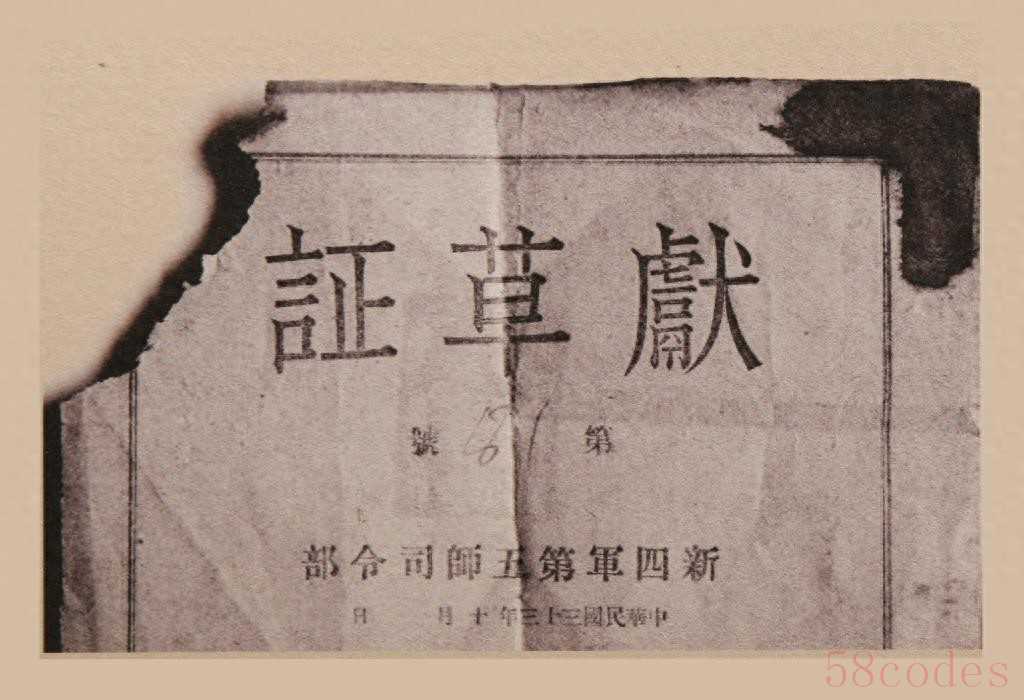 獻草証
第 號
新四軍第五師司令部
中華民國三十三年十月 日
58codes